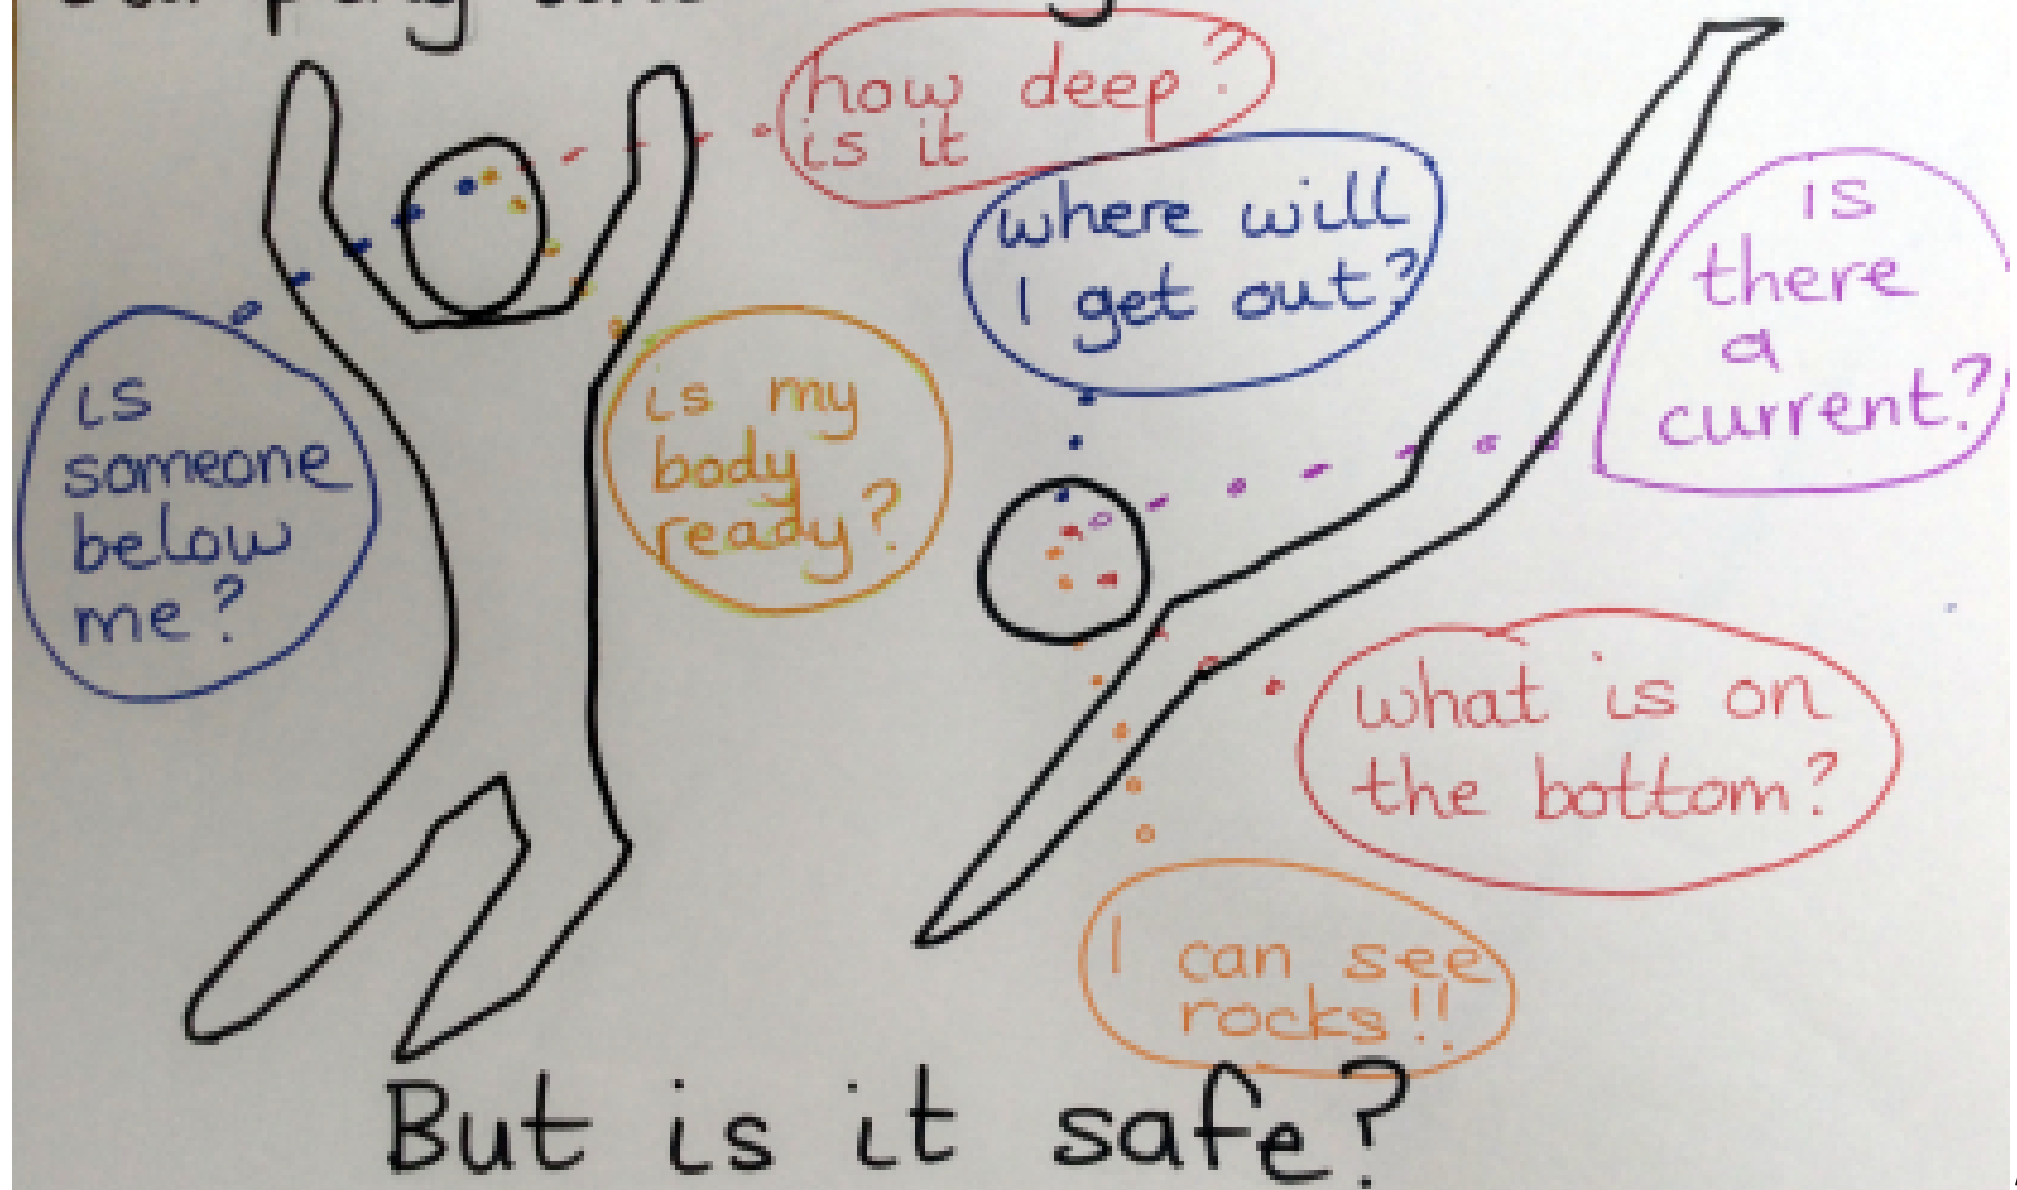 how deep?
is it
where will
I get out?
is
there
a
current?
is
someone
below
me?
is my
body
ready?
what is on
the bottom?
I can see
rocks!!
But is it safe?